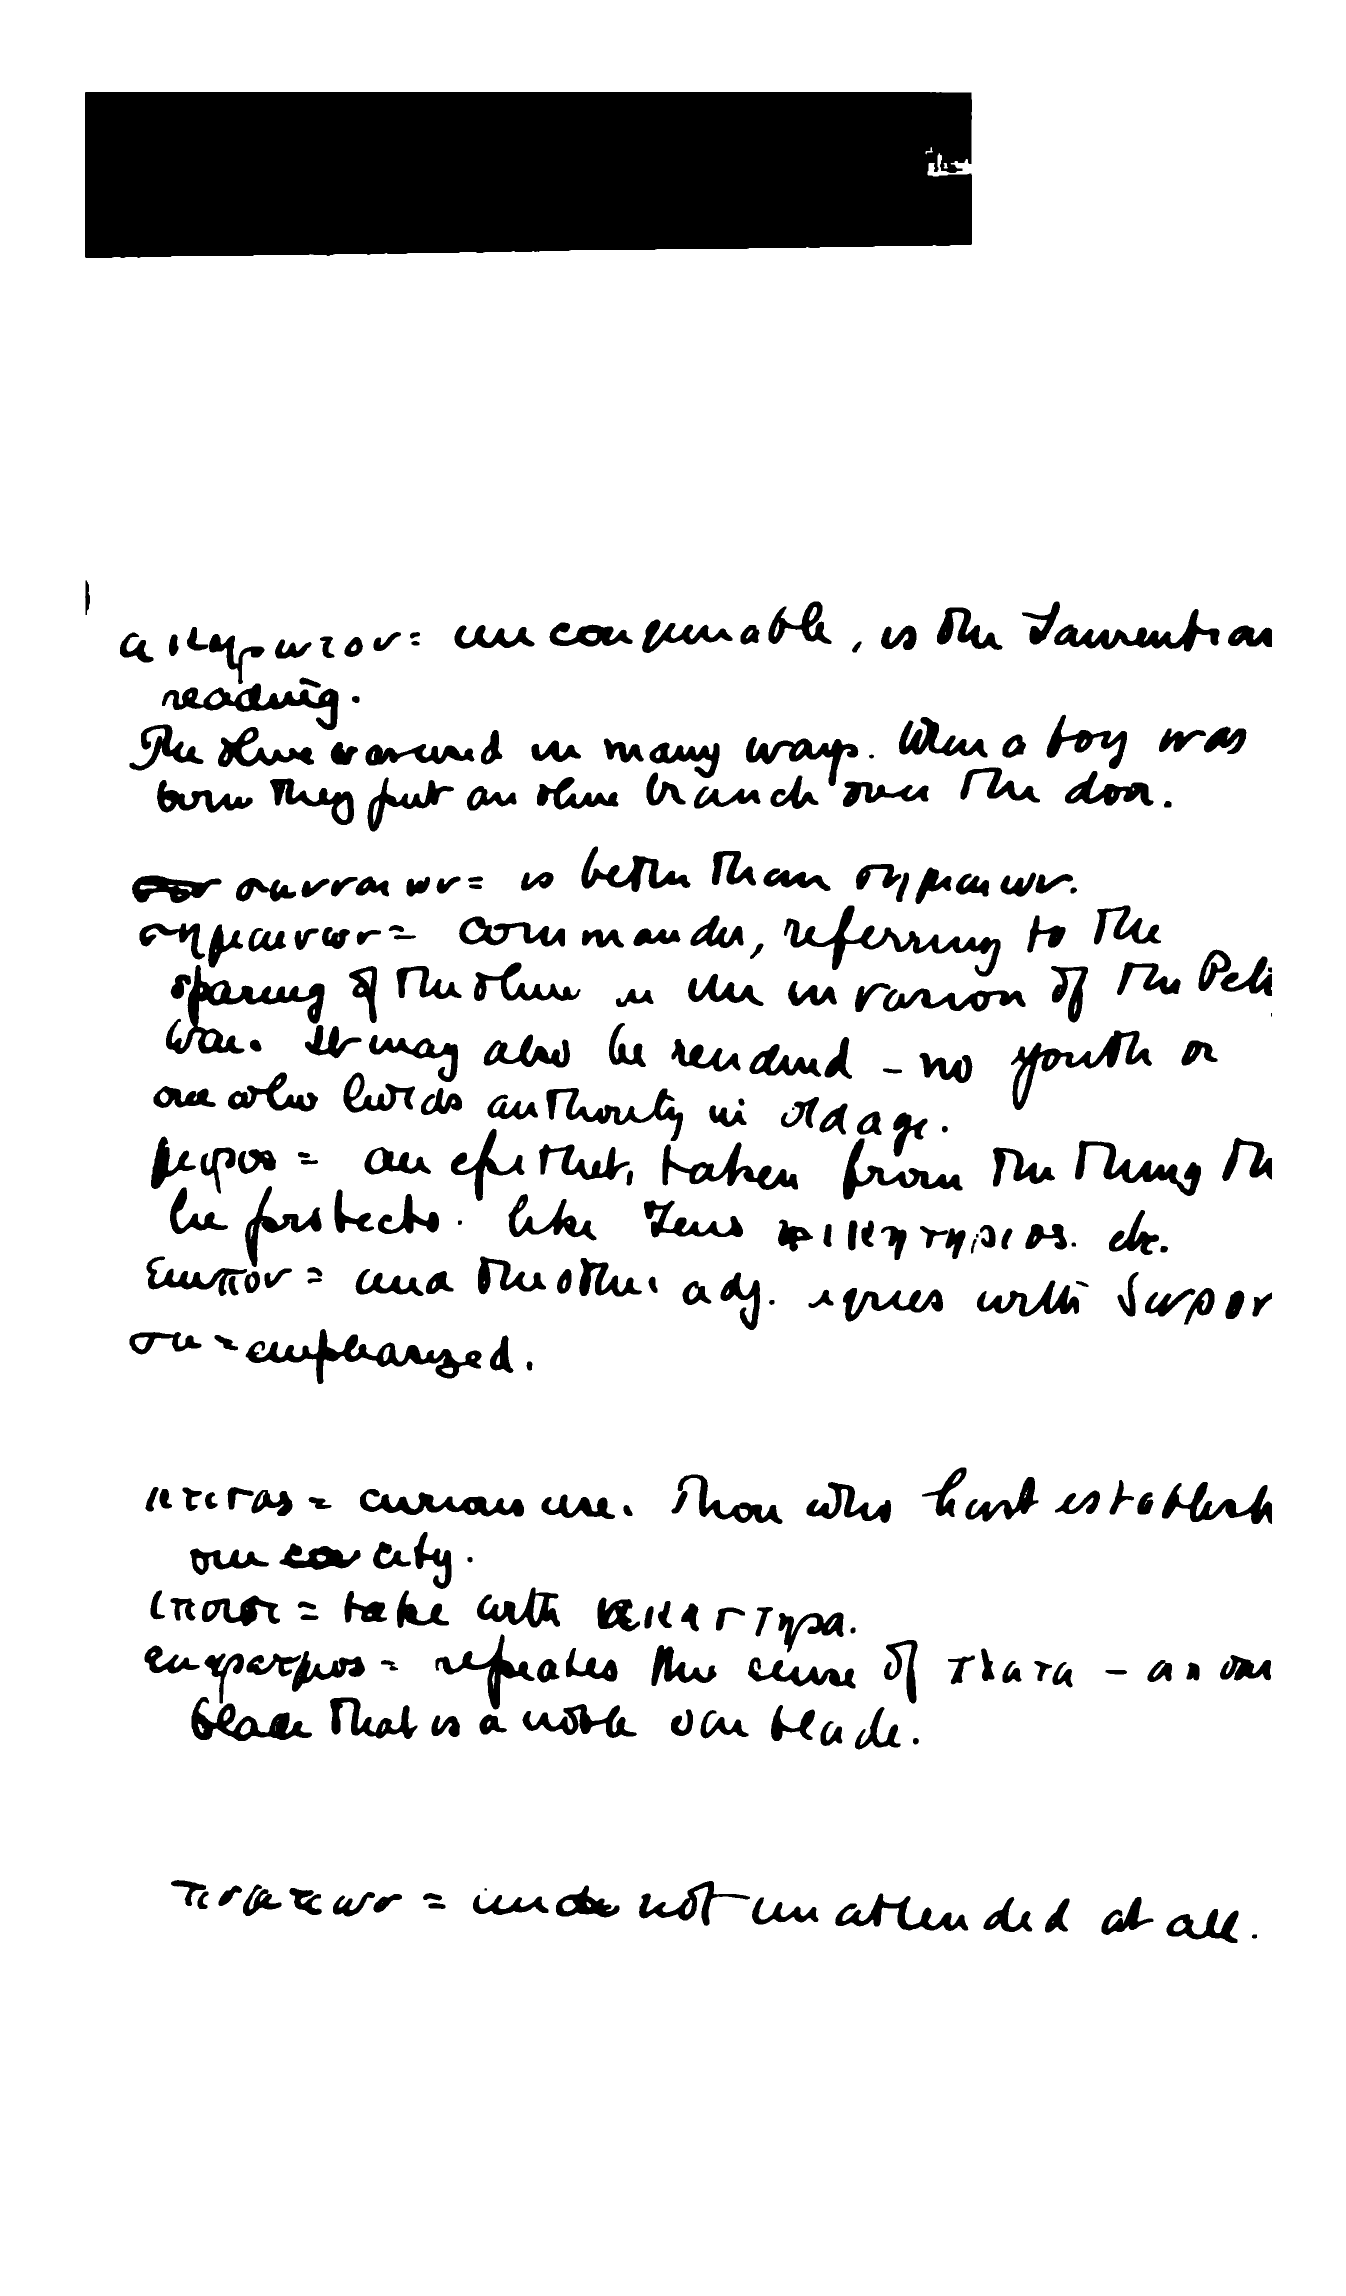 ακηρωτον = unconquerable, is the Laurentian
reading.
The olive was used in many ways. When a boy was
born they put an olive branch over the door.
συνναιων = is better than σημαινων.
σημαινων = commander, referring to the
sparing of the olive in the invasion of the Pel
War. It may also be rendered – no youth or
one who holds authority in old age.
μοριος = an epithet, taken from the thing th
he protects. like Zeus ικητηριος. etc.
ευιππον = and the other adj. agrees with δωρον
συ = emphasized.
κτισας = curious use. Thou who hast establish
our city.
= take with
= repeates the sense of πλατα – an oar
blade that is a noble oar blade.
= not unattended at all.